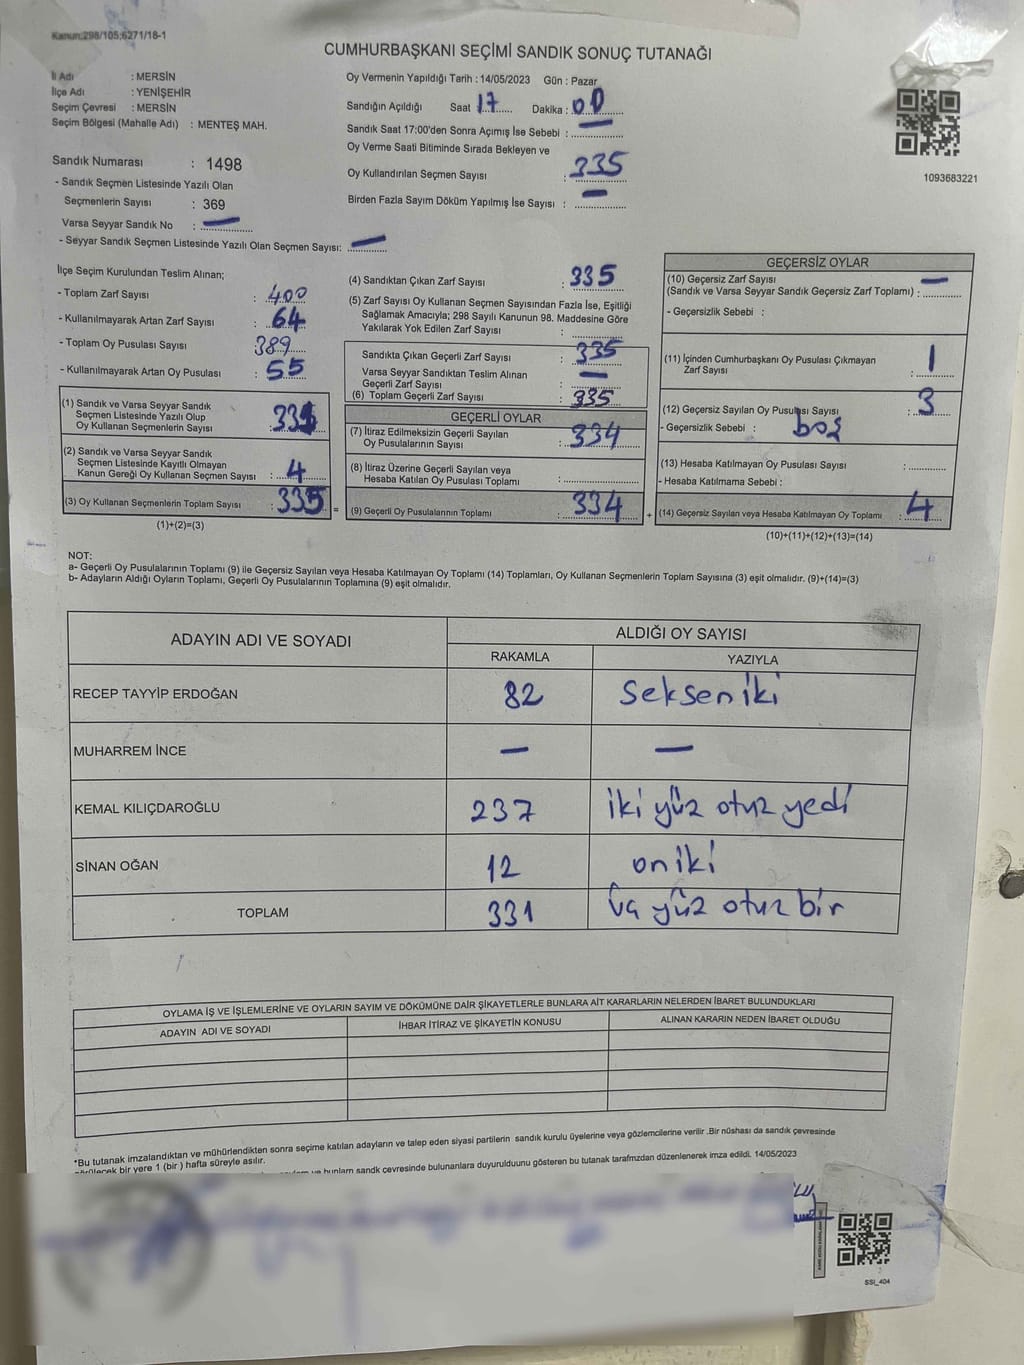 Kanun:298/105;6271/18-1
CUMHURBAŞKANI SEÇİMİ SANDIK SONUÇ TUTANAĞI
İl Adı : MERSİN
İlçe Adı : YENİŞEHİR
Seçim Çevresi : MERSİN
Seçim Bölgesi (Mahalle Adı) : MENTEŞ MAH.
Sandık Numarası : 1498
- Sandık Seçmen Listesinde Yazılı Olan
Seçmenlerin Sayısı : 369
Varsa Seyyar Sandık No : —
- Seyyar Sandık Seçmen Listesinde Yazılı Olan Seçmen Sayısı: —
Oy Vermenin Yapıldığı Tarih : 14/05/2023 Gün : Pazar
Sandığın Açıldığı Saat 17 Dakika : 00
Sandık Saat 17:00'den Sonra Açımış İse Sebebi : —
Oy Verme Saati Bitiminde Sırada Bekleyen ve
Oy Kullandırılan Seçmen Sayısı : 335
Birden Fazla Sayım Döküm Yapılmış İse Sayısı : —
1093683221
İlçe Seçim Kurulundan Teslim Alınan;
- Toplam Zarf Sayısı : 400
- Kullanılmayarak Artan Zarf Sayısı : 64
- Toplam Oy Pusulası Sayısı : 389
- Kullanılmayarak Artan Oy Pusulası : 55
(1) Sandık ve Varsa Seyyar Sandık
Seçmen Listesinde Yazılı Olup
Oy Kullanan Seçmenlerin Sayısı : 331
(2) Sandık ve Varsa Seyyar Sandık
Seçmen Listesinde Kayıtlı Olmayan
Kanun Gereği Oy Kullanan Seçmen Sayısı : 4
(3) Oy Kullanan Seçmenlerin Toplam Sayısı : 335
(1)+(2)=(3)
(4) Sandıktan Çıkan Zarf Sayısı : 335
(5) Zarf Sayısı Oy Kullanan Seçmen Sayısından Fazla İse, Eşitliği
Sağlamak Amacıyla; 298 Sayılı Kanunun 98. Maddesine Göre
Yakılarak Yok Edilen Zarf Sayısı :
Sandıkta Çıkan Geçerli Zarf Sayısı : 335
Varsa Seyyar Sandıktan Teslim Alınan
Geçerli Zarf Sayısı : —
(6) Toplam Geçerli Zarf Sayısı : 335
GEÇERLİ OYLAR
(7) İtiraz Edilmeksizin Geçerli Sayılan
Oy Pusulalarının Sayısı : 334
(8) İtiraz Üzerine Geçerli Sayılan veya
Hesaba Katılan Oy Pusulası Toplamı :
(9) Geçerli Oy Pusulalarının Toplamı : 334
GEÇERSİZ OYLAR
(10) Geçersiz Zarf Sayısı
(Sandık ve Varsa Seyyar Sandık Geçersiz Zarf Toplamı) : —
- Geçersizlik Sebebi :
(11) İçinden Cumhurbaşkanı Oy Pusulası Çıkmayan
Zarf Sayısı : 1
(12) Geçersiz Sayılan Oy Pusulası Sayısı : 3
- Geçersizlik Sebebi : boş
(13) Hesaba Katılmayan Oy Pusulası Sayısı :
- Hesaba Katılmama Sebebi :
(14) Geçersiz Sayılan veya Hesaba Katılmayan Oy Toplamı : 4
(10)+(11)+(12)+(13)=(14)
NOT:
a- Geçerli Oy Pusulalarının Toplamı (9) ile Geçersiz Sayılan veya Hesaba Katılmayan Oy Toplamı (14) Toplamları, Oy Kullanan Seçmenlerin Toplam Sayısına (3) eşit olmalıdır. (9)+(14)=(3)
b- Adayların Aldığı Oyların Toplamı, Geçerli Oy Pusulalarının Toplamına (9) eşit olmalıdır.
ADAYIN ADI VE SOYADI ALDIĞI OY SAYISI
RAKAMLA YAZIYLA
RECEP TAYYİP ERDOĞAN 82 seksen iki
MUHARREM İNCE — —
KEMAL KILIÇDAROĞLU 237 iki yüz otuz yedi
SİNAN OĞAN 12 on iki
TOPLAM 331 üç yüz otuz bir
OYLAMA İŞ VE İŞLEMLERİNE VE OYLARIN SAYIM VE DÖKÜMÜNE DAİR ŞİKAYETLERLE BUNLARA AİT KARARLARIN NELERDEN İBARET BULUNDUKLARI
ADAYIN ADI VE SOYADI İHBAR İTİRAZ VE ŞİKAYETİN KONUSU ALINAN KARARIN NEDEN İBARET OLDUĞU
*Bu tutanak imzalandıktan ve mühürlendikten sonra seçime katılan adayların ve talep eden siyasi partilerin sandık kurulu üyelerine veya gözlemcilerine verilir .Bir nüshası da sandık çevresinde
görülecek bir yere 1 (bir ) hafta süreyle asılır.
ve bunların sandık çevresinde bulunanlara duyurulduunu gösteren bu tutanak tarafmzdan düzenlenerek imza edildi. 14/05/2023
SSI_404